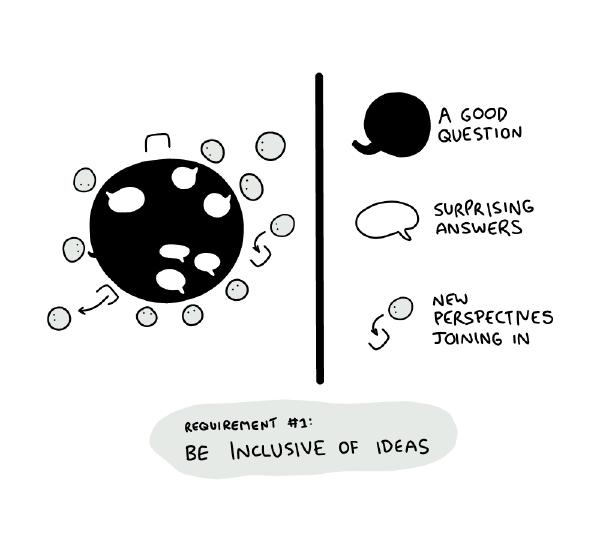 A GOOD
QUESTION
SURPRISING
ANSWERS
NEW
PERSPECTIVES
JOINING IN
REQUIREMENT #1:
BE INCLUSIVE OF IDEAS